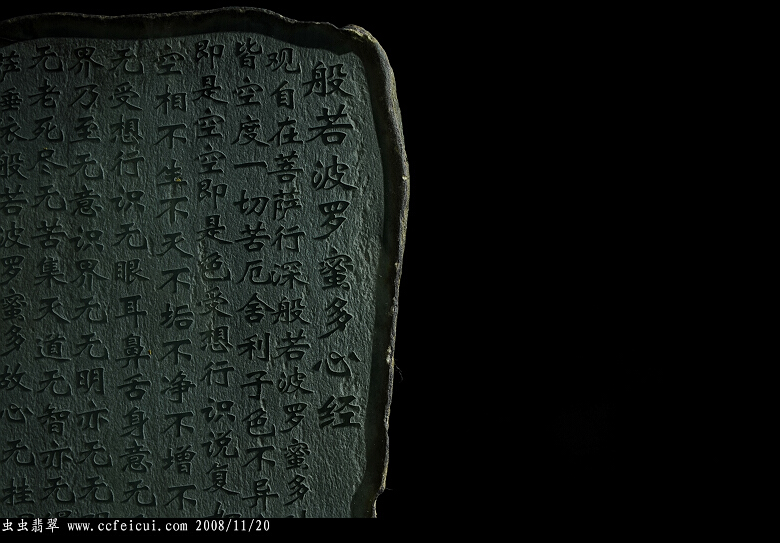 般若波罗蜜多心经
观自在菩萨行深般若波罗蜜多
皆空度一切苦厄舍利子色不异
即是空空即是色受想行识说复
空相不生不灭不垢不净不增不
无受想行识无眼耳鼻舌身意无
界乃至无意识界无无明亦无无
无老死尽无苦集灭道无智亦无
萨埵依般若波罗蜜多故心无挂
虫虫翡翠 www.ccfeicui.com 2008/11/20